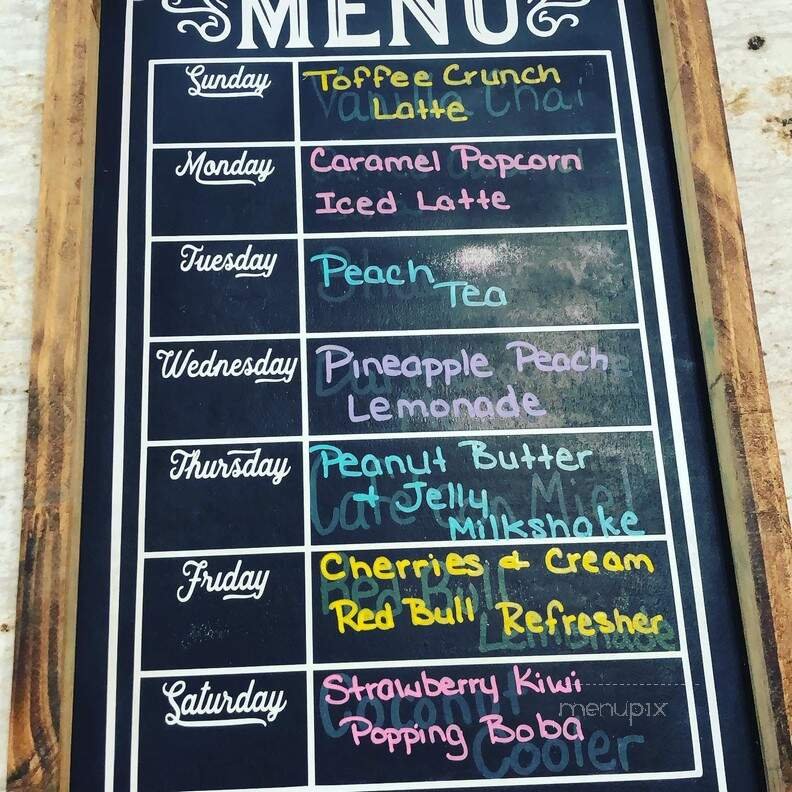 MENU
Sunday
Toffee Crunch
Latte
Vanilla Chai
Monday
Caramel Popcorn
Iced Latte
Tuesday
Peach
Tea
Wednesday
Pineapple Peach
Lemonade
Thursday
Peanut Butter
+ Jelly
Milkshake
Cafe Con Miel
Friday
Cherries & Cream
Red Bull Refresher
Red Bull
Lemonade
Saturday
Strawberry Kiwi
Popping Boba
Coconut
Cooler
menupix